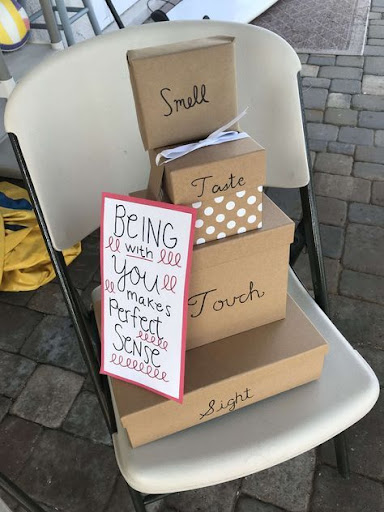 Smell
Taste
BEING
with
You
makes
Perfect
SENSE
Touch
Sight